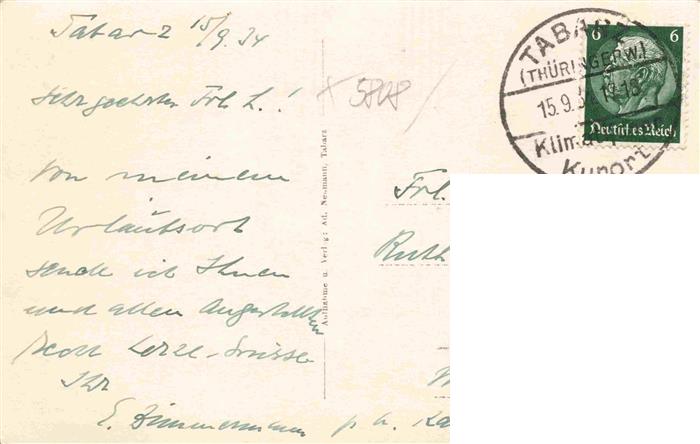 Tabarz 15/9.34
Sehr geehrtes Frl. L.!
Von meinem
Urlaubsort
sende ich Ihnen
und allen Angestellten
recht herzl. Grüsse
Ihr
E. Zimmermann
5808
Aufnahme u. Verlag: Ad. Neumann, Tabarz
TABARZ
(THÜRINGERW.)
15.9.3 17-18
Klimat
Kurort
6 6
Deutsches Reich
Frl.
Ruth